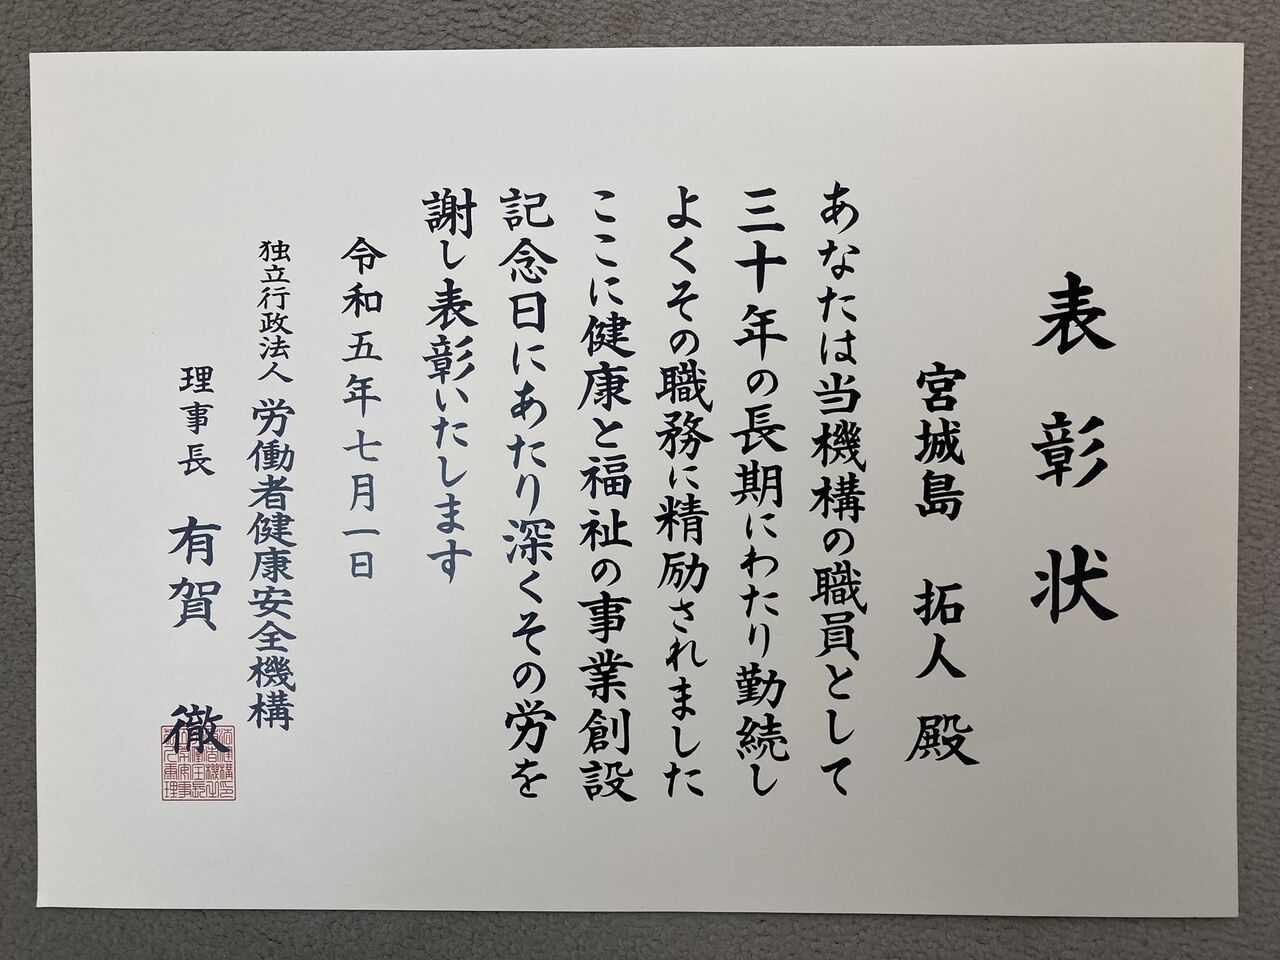 表彰状
宮城島 拓人 殿
あなたは当機構の職員として
三十年の長期にわたり勤続し
よくその職務に精励されました
ここに健康と福祉の事業創設
記念日にあたり深くその労を
謝し表彰いたします
令和五年七月一日
独立行政法人 労働者健康安全機構
理事長 有賀 徹